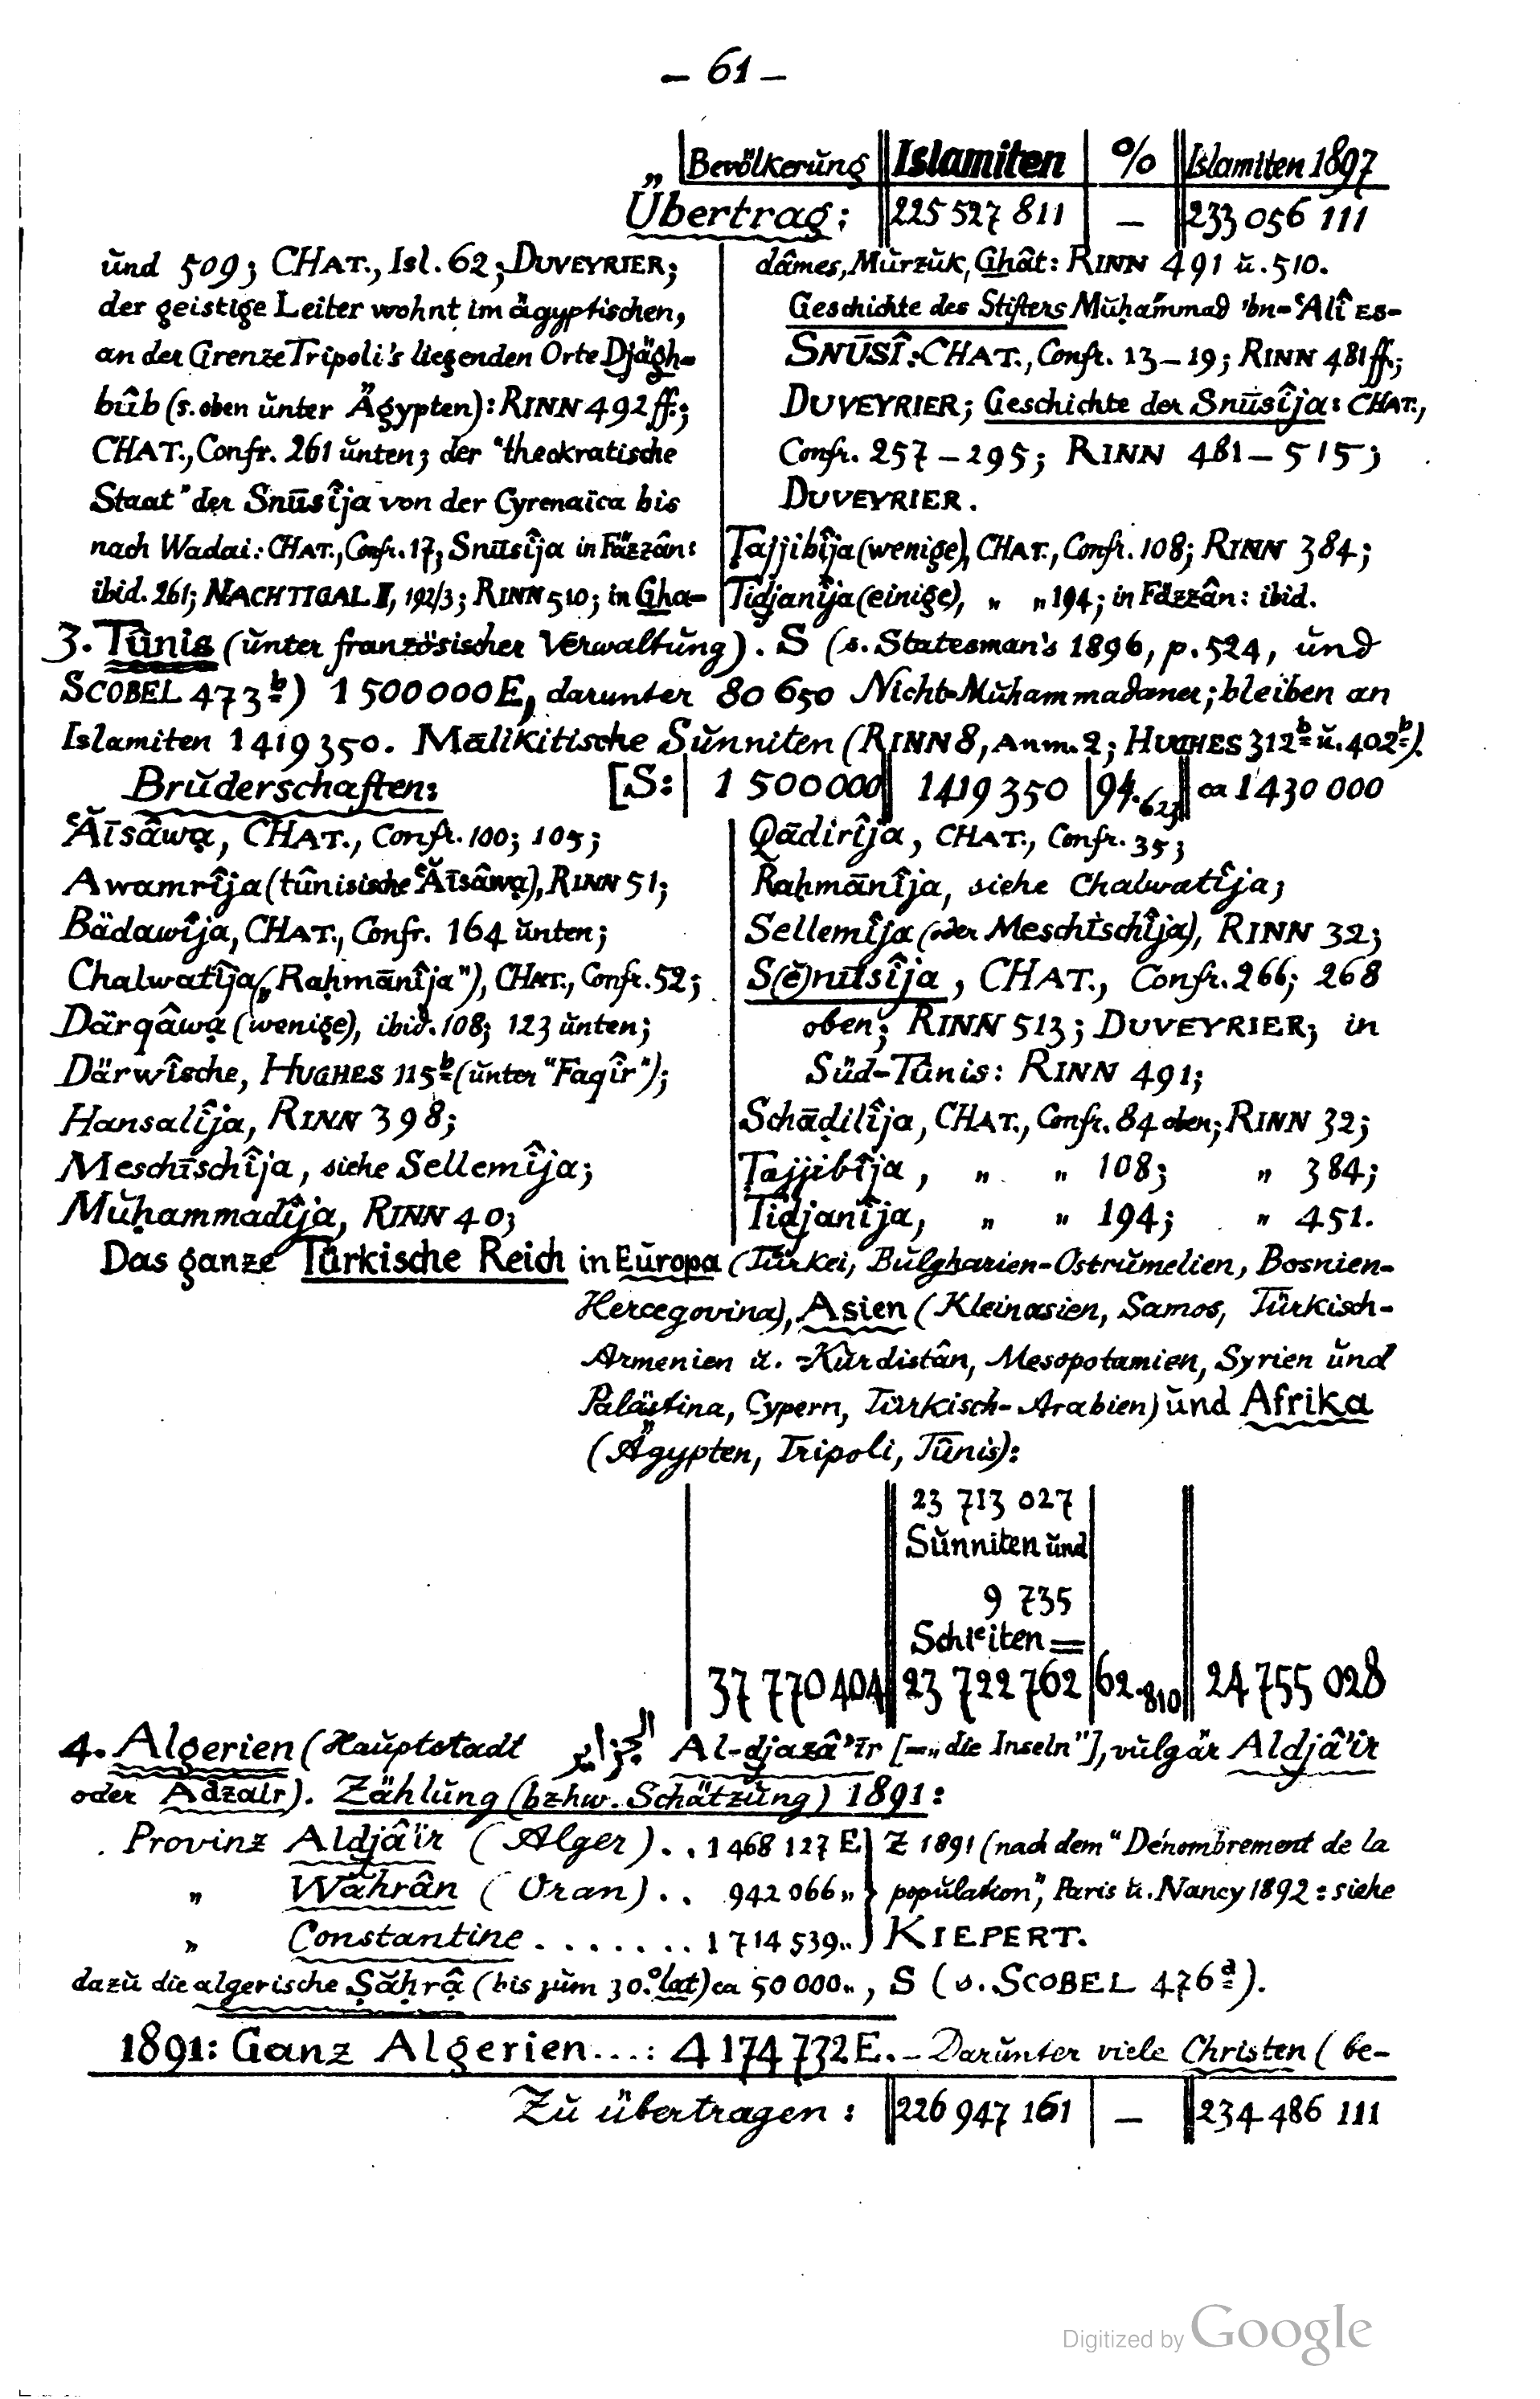 – 61 –
Bevölkerŭng Islamiten % Islamiten 1897
Übertrag: 225 527 811 – 233 056 111
ŭnd 509; CHAT., Isl. 62; DUVEYRIER;
der geistige Leiter wohnt im ägyptischen,
an der Grenze Tripoli's liegenden Orte Djägh-
bûb (s. oben ŭnter Ägypten): RINN 492 ff.;
CHAT., Confr. 261 ŭnten; der "theokratische
Staat" der Snūsîja von der Cyrenaïca bis
nach Wadai: CHAT., Confr. 17; Snūsîja in Fäzzân:
ibid. 261; NACHTIGAL II, 192/3; RINN 510; in Gha-
dâmes, Mŭrzŭk, Ghât: RINN 491 ŭ. 510.
Geschichte des Stifters Mŭḥámmad 'bn-ʿAlî ES-
SNŪSÎ: CHAT., Confr. 13–19; RINN 481 ff.;
DUVEYRIER; Geschichte der Snūsîja: CHAT.,
Confr. 257–295; RINN 481–515;
DUVEYRIER.
Ṭajjibîja (wenige), CHAT., Confr. 108; RINN 384;
Tidjanîja (einige), „ „ 194; in Fäzzân: ibid.
3. Tûnis (ŭnter französischer Verwaltŭng). S (s. Statesman's 1896, p. 524, ŭnd
SCOBEL 473b) 1 500 000 E, darŭnter 80 650 Nicht-Mŭhammadaner; bleiben an
Islamiten 1 419 350. Mālikitische Sŭnniten (RINN 8, Anm. 2; HUGHES 312b ŭ. 402b).
Brŭderschaften: [S: 1 500 000 1 419 350 94.623 ca 1 430 000
ʿĂīsâwạ, CHAT., Confr. 100; 105;
Awamrîja (tûnisische ʿĂīsâwạ), RINN 51;
Bädawîja, CHAT., Confr. 164 ŭnten;
Chalwatîja („Raḥmānîja"), CHAT., Confr. 52;
Därqâwạ (wenige), ibid. 108; 123 ŭnten;
Därwîsche, HUGHES 115b (ŭnter "Faqîr");
Hansalîja, RINN 398;
Meschīschîja, siehe Sellemîja;
Mŭḥammadîja, RINN 40;
Qādirîja, CHAT., Confr. 35;
Raḥmānîja, siehe Chalwatîja;
Sellemîja (oder Meschīschîja), RINN 32;
S(ĕ)nūsîja, CHAT., Confr. 266; 268
oben; RINN 513; DUVEYRIER; in
Süd-Tûnis: RINN 491;
Schāḍilîja, CHAT., Confr. 84 oben; RINN 32;
Ṭajjibîja, „ „ 108; „ 384;
Tidjanîja, „ „ 194; „ 451.
Das ganze Türkische Reich in Eŭropa (Türkei, Bŭlgharien-Ostrŭmelien, Bosnien-
Hercegovina), Asien (Kleinasien, Samos, Türkisch-
Armenien ŭ. -Kŭrdistân, Mesopotamien, Syrien ŭnd
Palästina, Cypern, Türkisch-Arabien) ŭnd Afrika
(Ägypten, Tripoli, Tûnis):
23 713 027
Sŭnniten ŭnd
9 735
Schīʿiten =
37 770 404 23 722 762 62.810 24 755 028
4. Algerien (Hauptstadt الجزائر Al-djazâʾir [=„die Inseln"], vŭlgär Aldjâʾir
oder Adzair). Zählŭng (bzhw. Schätzŭng) 1891:
Provinz Aldjâʾir (Alger) . . 1 468 127 E Z 1891 (nach dem "Dénombrement de la
„ Wahrân (Oran) . . 942 066 „ popŭlation", Paris ŭ. Nancy 1892: siehe
„ Constantine . . . . . . . 1 714 539 „ KIEPERT.
dazŭ die algerische Ṣăḥrậ (bis zŭm 30.° lat) ca 50 000 „, S (s. SCOBEL 476a).
1891: Ganz Algerien...: 4 174 732 E. – Darŭnter viele Christen (be-
Zŭ übertragen: 226 947 161 – 234 486 111
Digitized by Google